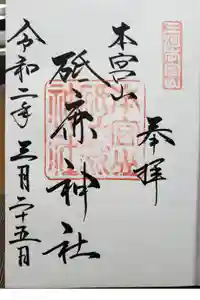 奉拝
本宮山
砥鹿神社
令和二年三月二十五日